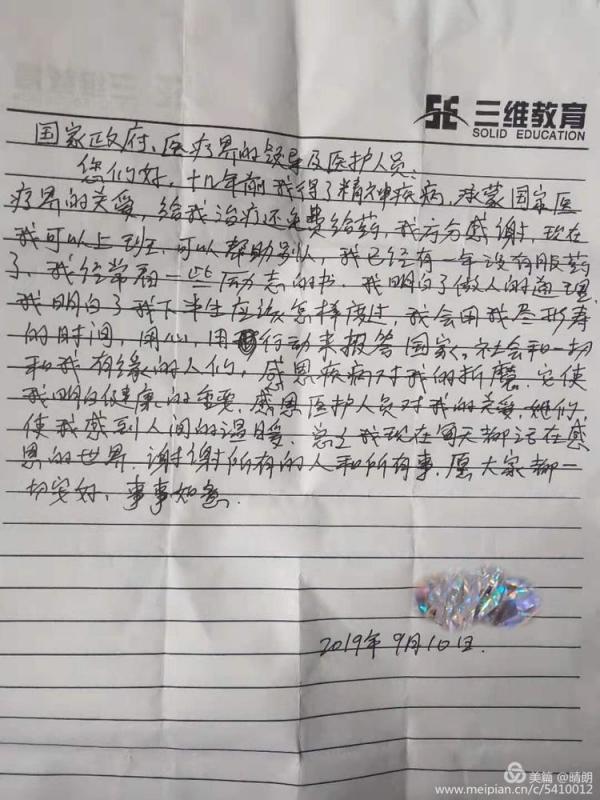 三维教育
SOLID EDUCATION
国家政府、医疗界的领导及医护人员:
您们好,十几年前我得了精神疾病,承蒙国家医
疗界的关爱,给我治疗还免费给药,我十分感谢,现在
我可以上班,可以帮助别人,我已经有一年没有服药
了,我经常看一些励志的书,我明白了做人的道理,
我明白了我下半生应该怎样度过,我会用我尽形寿
的时间,用心,用行动来报答国家,社会和一切
和我有缘的人们,感恩疾病对我的折磨,它使
我明白健康的重要,感恩医护人员对我的关爱,她们
使我感到人间的温暖,总之我现在每天都活在感
恩的世界,谢谢所有的人和所有事,愿大家都一
切安好,事事如意.
2019年9月10日.
美篇@晴朗
www.meipian.cn/c/5410012